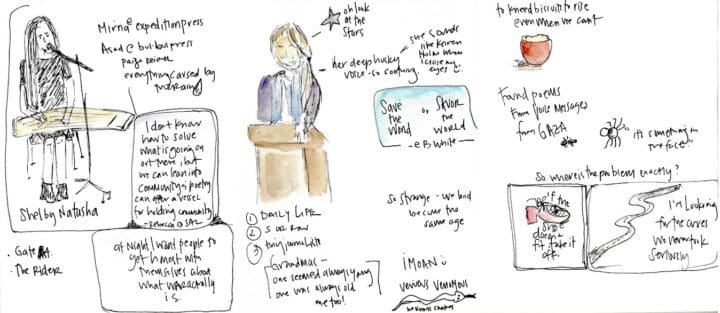 Mirna @ expeditionpress
Asad @ bulbulpress
everything caused by
the rain
I don't know
how to solve
what is going on
out there, but
we can lean into
community & poetry
can offer a vessel
for holding community
Shelby Natasha
• Gate A4
• The Rider
at Night I want people to
get honest with
themselves about
what
is.
oh look
at the
stars
her deep husky
voice - so
she sounds
like
when
I close my
eyes
Save
the
World
or SAVOR
the
WORLD
- e B White -
① DAILY LIFE
②
③
Grandmas -
one seemed always young
one was always old
me too!
so strange - we
the
same age
iMOAN
Venomous
to knead biscuits to rise
even when we can't
found poems
from voice messages
from GAZA
it's something in
the face!
So where is the problem exactly?
if
the
shoe
doesn't
fit take it
off.
I'm Looking
for the curves
we never took
seriously